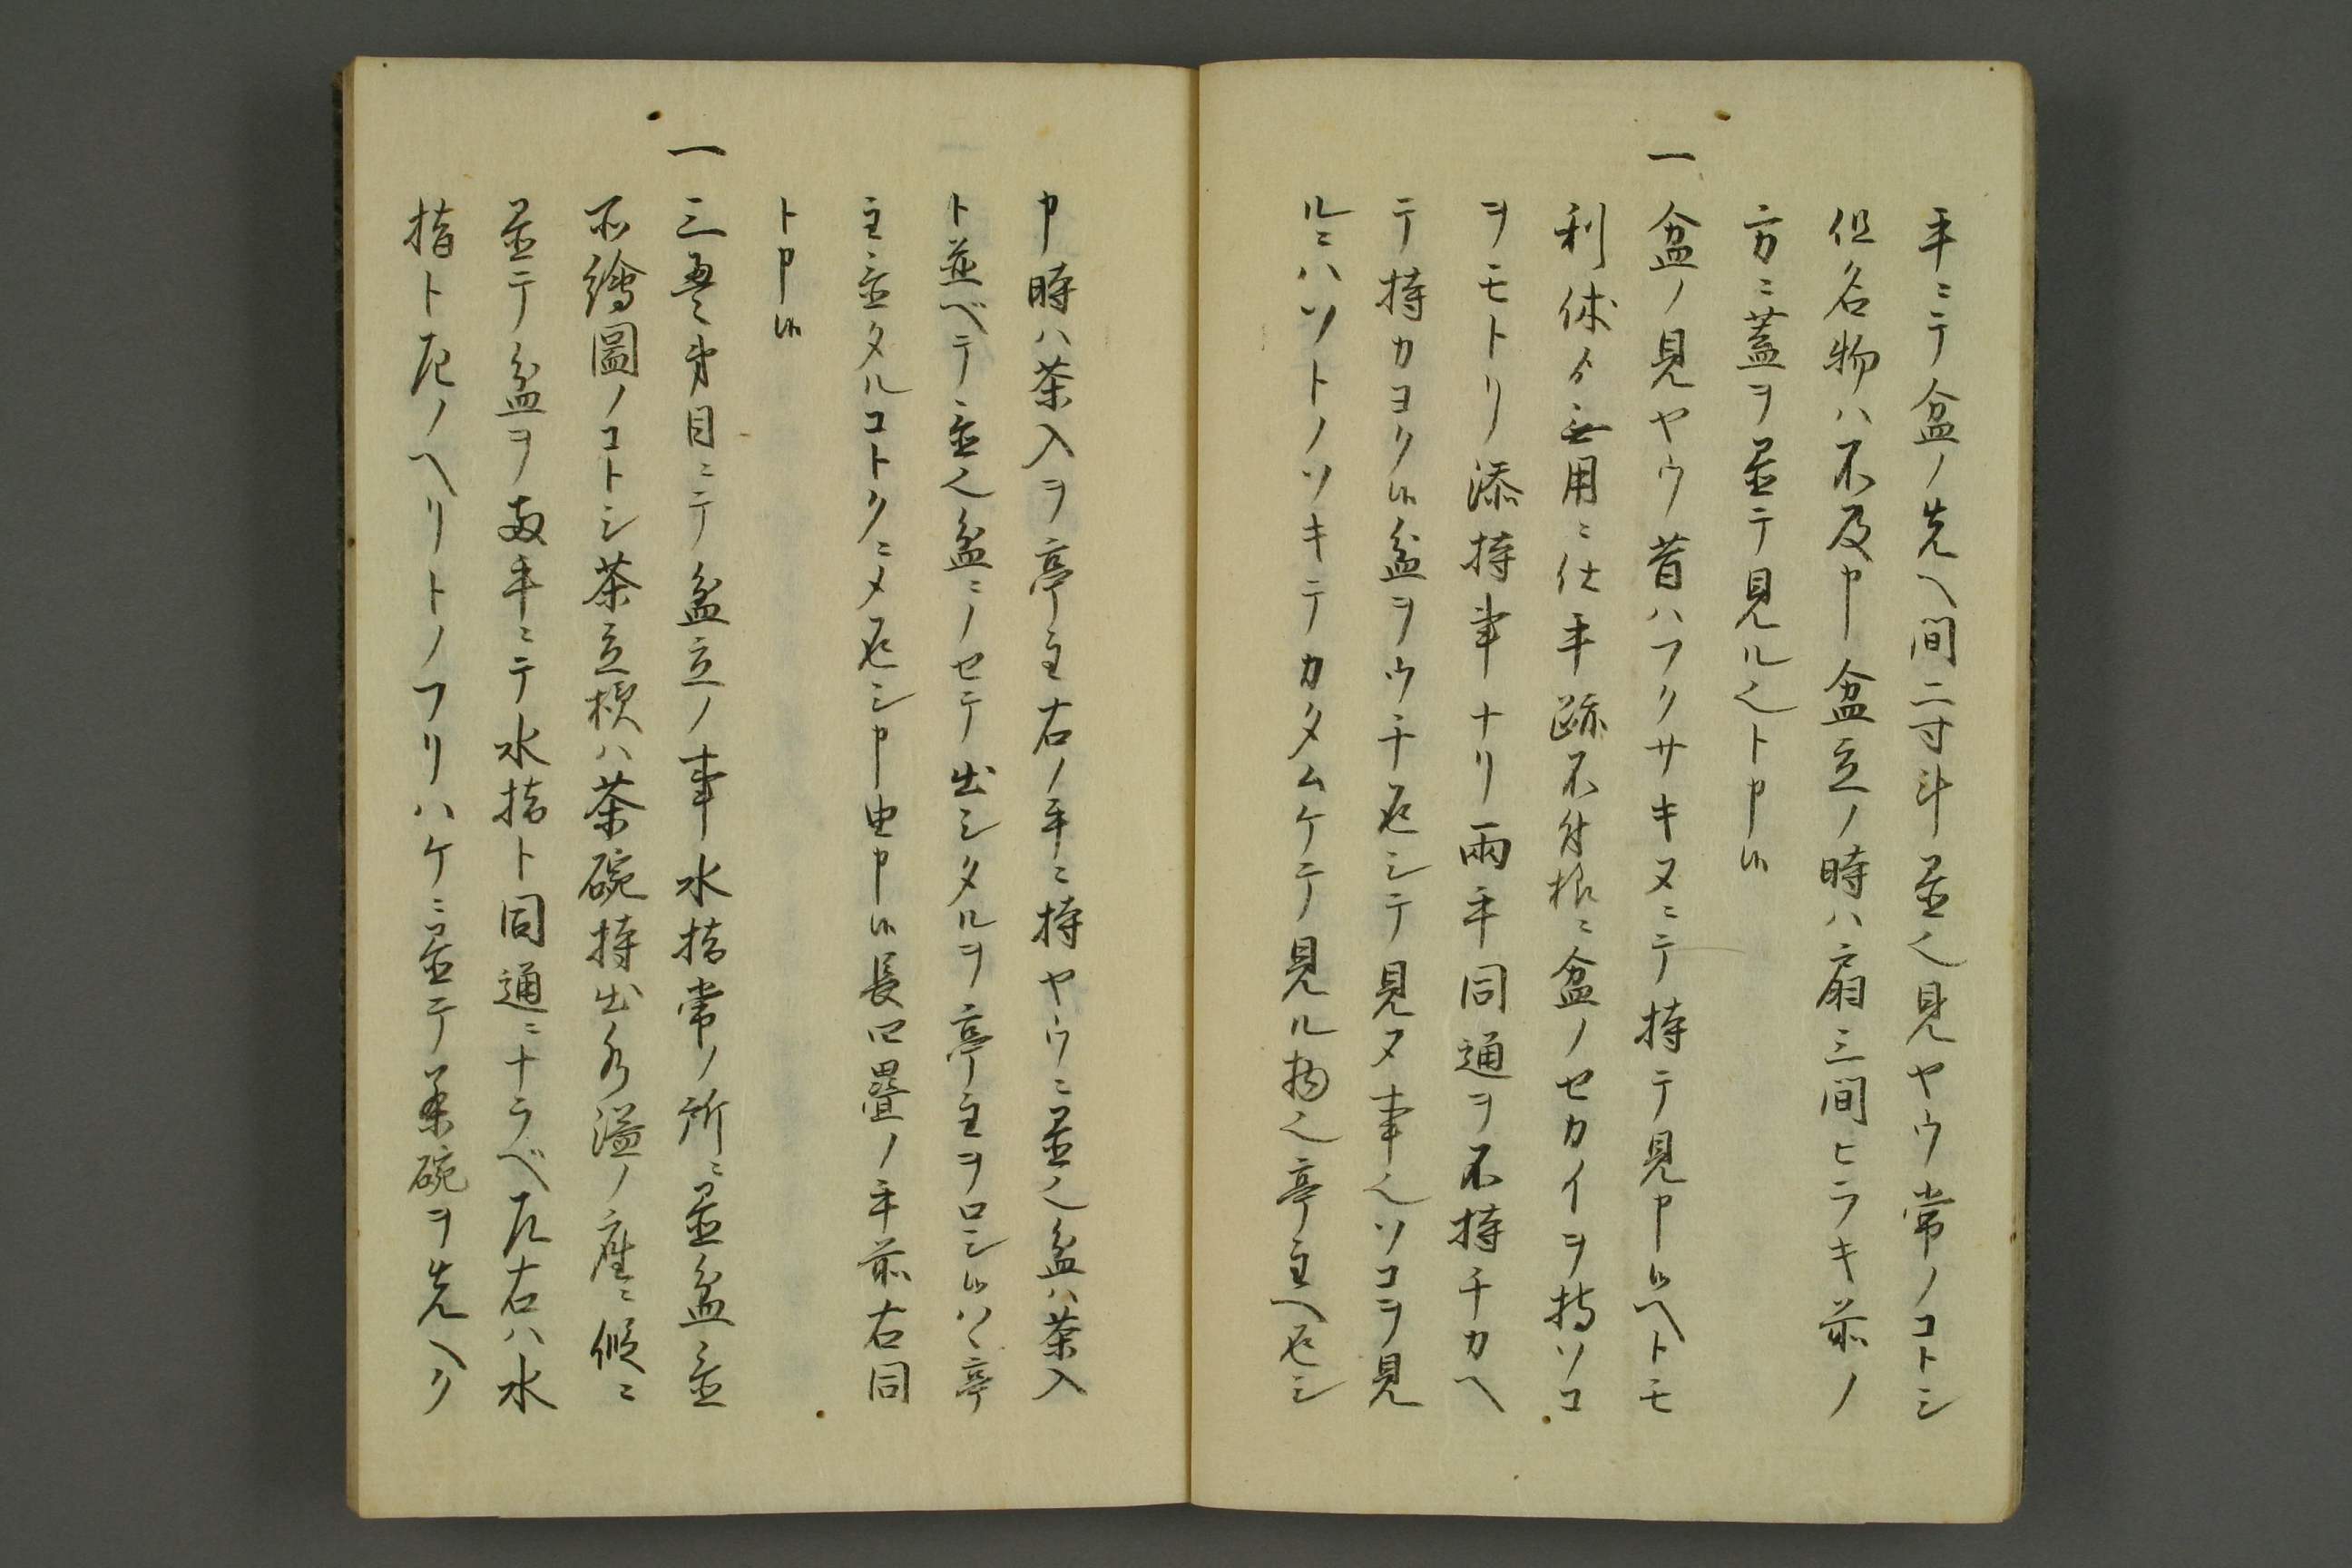 手ニテ盆ノ先ヘ間二寸斗置也見ヤウ常ノコトシ
但名物ハ不及申盆立ノ時ハ扇三間ヒラキ前ノ
方ニ蓋ヲ置テ見ル也ト申候
一盆ノ見ヤウ昔ハフクサキヌニテ持テ見申候ヘトモ
利休ゟ無用ニ仕手跡不付様ニ盆ノセカイヲ持ソコ
ヲモトリ添持事ナリ両手同通ヲ不持チカヘ
テ持カヨク候盆ヲウチ返シテ見ヌ事也ソコヲ見
ルニハソトノソキテカタムケテ見ル物也亭主ヘ返シ
申時ハ茶入ヲ亭主右ノ手ニ持ヤウニ置也盆ハ茶入
ト並ベテ置也盆ニノセテ出シタルヲ亭主ヲロシ候ハヽ亭
主置タルコトクニメ返シ申由申候長四畳ノ手前右同
ト申候
一三畳半目ニテ盆立ノ事水指常ノ所ニ置盆置
所繪圖ノコトシ茶立様ハ茶碗持出水溢ノ座ニ假ニ
置テ盆ヲ両手ニテ水指ト同通ニナラベ左右ハ水
指ト左ノヘリトノフリハケニ置テ茶碗ヲ先ヘク